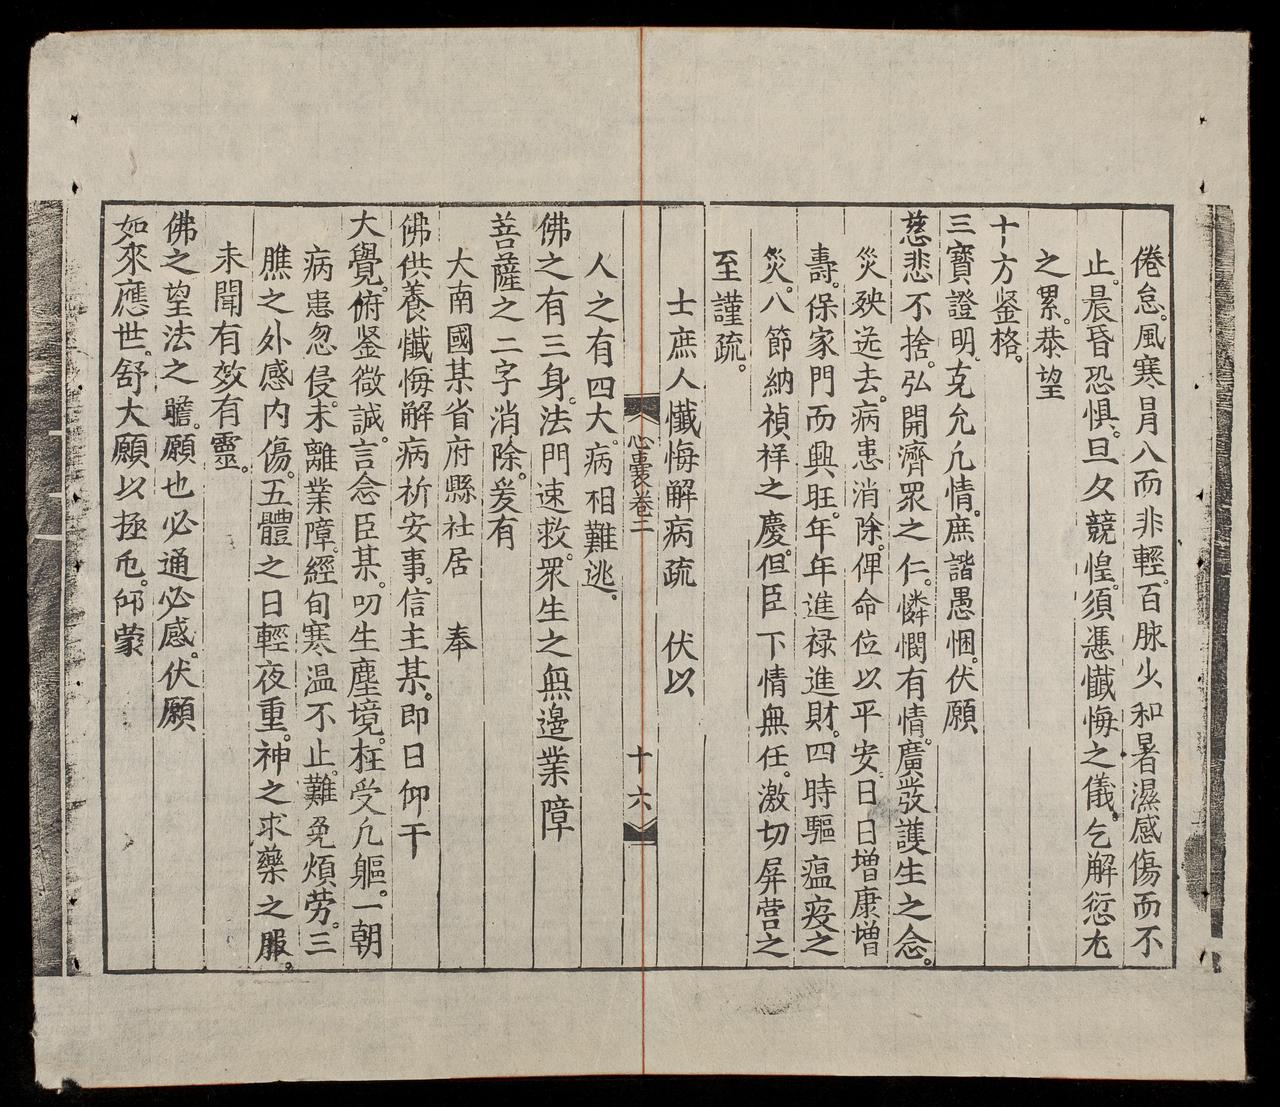 倦怠。風寒冒八而非輕。百脉少和暑濕感傷而不
止。晨昏恐惧。旦夕競惶。須憑懺悔之儀。乞解愆尤
之累。恭望
十方鋻格。
三寳證明。克允凢情。庶諧愚悃。伏願
慈悲不捨。弘開濟眾之仁。憐憫有情。廣發護生之念。
災殃迸去。病患消除。俾命位以平安。日日增康增
壽。保家門而興旺。年年進禄進財。四時驅瘟疫之
災。八節納禎祥之慶。但臣下情無任。激切屏营之
至謹疏。
士庶人懺悔解病疏　伏以
心囊卷二　十六
人之有四大。病相難逃。
佛之有三身。法門速救。眾生之無邊業障
菩薩之二字消除。爰有
大南國某省府縣社居　奉
佛供養懺悔解病祈安事。信主某。即日仰干
大覺。俯鋻微誠。言念臣某。叨生塵境。枉受凢軀。一朝
病患忽侵。未離業障。經旬寒温不止。難免煩劳。三
膲之外感内傷。五體之日輕夜重。神之求藥之服。
未聞有效有靈。
佛之望法之瞻。願也必通必感。伏願
如來應世。舒大願以拯厄。師蒙